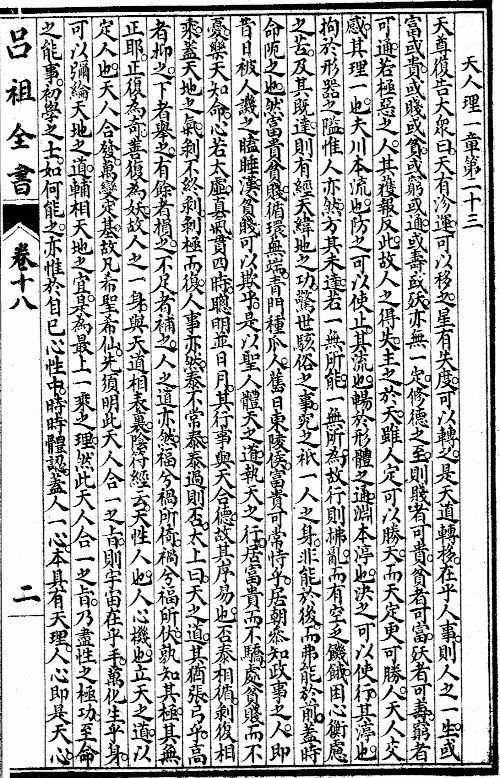 天人理一章第二十三
天尊復告大衆曰天有沴運可以移之星有失度可以轉之是天道轉移在乎人事則人之一生或
富或貴或賤或貧或窮或通或壽或殀亦無一定修德之至則賤者可貴貧者可富殀者可壽窮者
可通若極惡之人其獲報反此故人之得失主之於天雖人定可以勝天而天定更可勝人天人交
感其理一也夫川本流也防之可以使止其流也暢於形體之適淵本渟也決之可以使行其渟也
拘於形器之隘惟人亦然方其未達若一無所能一無所為故行則拂亂而有空乏饑餓困心衡慮
之苦及其既達則有經天緯地之功驚世駭俗之事究之祇一人之身非能於後而弗能於前蓋時
命阨之也然富貴貧賤循環無端青門種瓜人舊日東陵侯富貴可常恃乎居朝叅知政事之人即
昔日被人譏之瞌睡漢貧賤可以欺乎是以聖人體天之道執天之行居富貴而不驕處貧賤而不
憂樂天知命心若太虛真氣貫四時聰明並日月其行事與天合德故其序易也否泰相循剥復相
乘蓋天地之氣剥不終剥剥極而復人事亦然泰不常泰泰過則否太上曰天之道其猶張弓乎高
者抑之下者舉之有餘者損之不足者補之人之道亦然福兮禍所倚禍兮福所伏孰知其極其無
正耶正復為奇善復為妖故人之一身與天道相表裏陰符經云天性人也人心機也立天之道以
定人也天人合發萬變定基故凡希聖希仙先須明此天人合一之旨則宇宙在乎手萬化生乎身
可以彌綸天地之道輔相天地之宜是為最上一乘之理然此天人合一之旨乃盡性之極功至命
之能事初學之士如何能之亦惟於自己心性中時時體認蓋人一心本具有天理人心即是天心
呂祖全書
卷十八
二